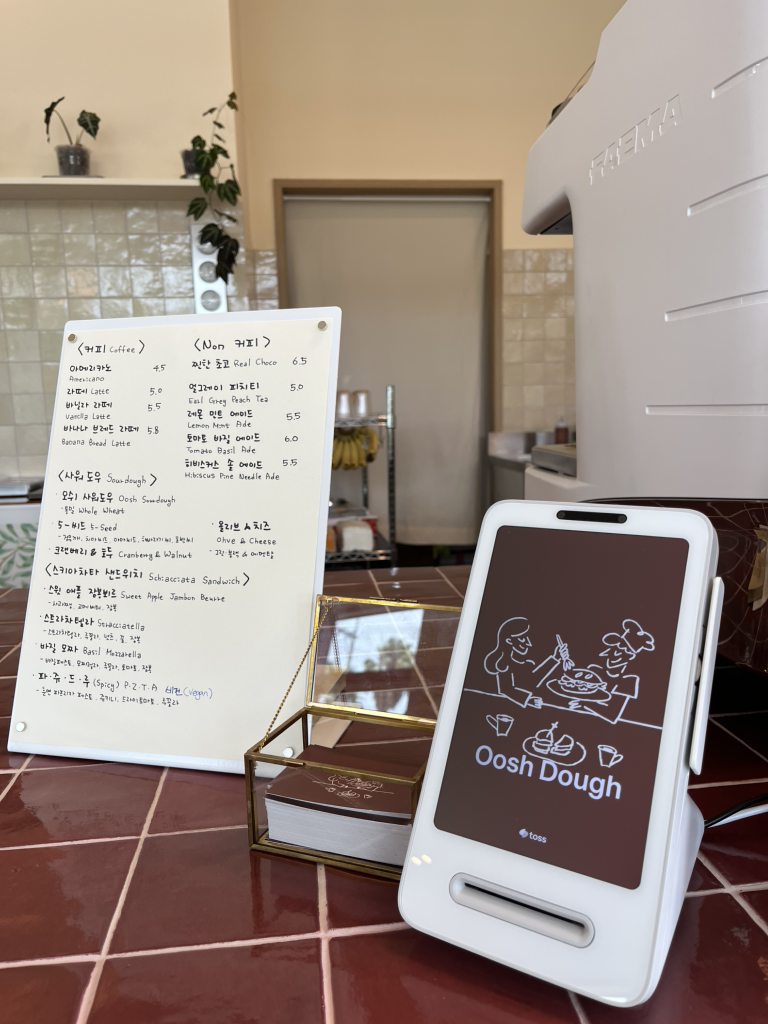 FAEMA
〈커피 Coffee〉
아메리카노 4.5
Americano
라떼 Latte 5.0
바닐라 라떼 5.5
Vanilla Latte
바나나 브레드 라떼 5.8
Banana Bread Latte
〈Non 커피〉
찐한 초코 Real Choco 6.5
얼그레이 피치티 5.0
Earl Grey Peach Tea
레몬 민트 에이드 5.5
Lemon Mint Ade
토마토 바질 에이드 6.0
Tomato Basil Ade
히비스커스 솔 에이드 5.5
Hibiscus Pine Needle Ade
〈사워도우 Sourdough〉
· 오쉬 사워도우 Oosh Sourdough
- 통밀 Whole Wheat
· 5-씨드 5-Seed
· 크랜베리 & 호두 Cranberry & Walnut
· 올리브 & 치즈
Olive & Cheese
〈스키아차타 샌드위치 Schiacciata Sandwich〉
· 스윗 애플 잠봉뵈르 Sweet Apple Jambon Beurre
· 스트라차텔라 Stracciatella
· 바질 모짜 Basil Mozzarella
· 파·쥬·드·루 (Spicy) P·Z·T·A 비건 (Vegan)
Oosh Dough
toss